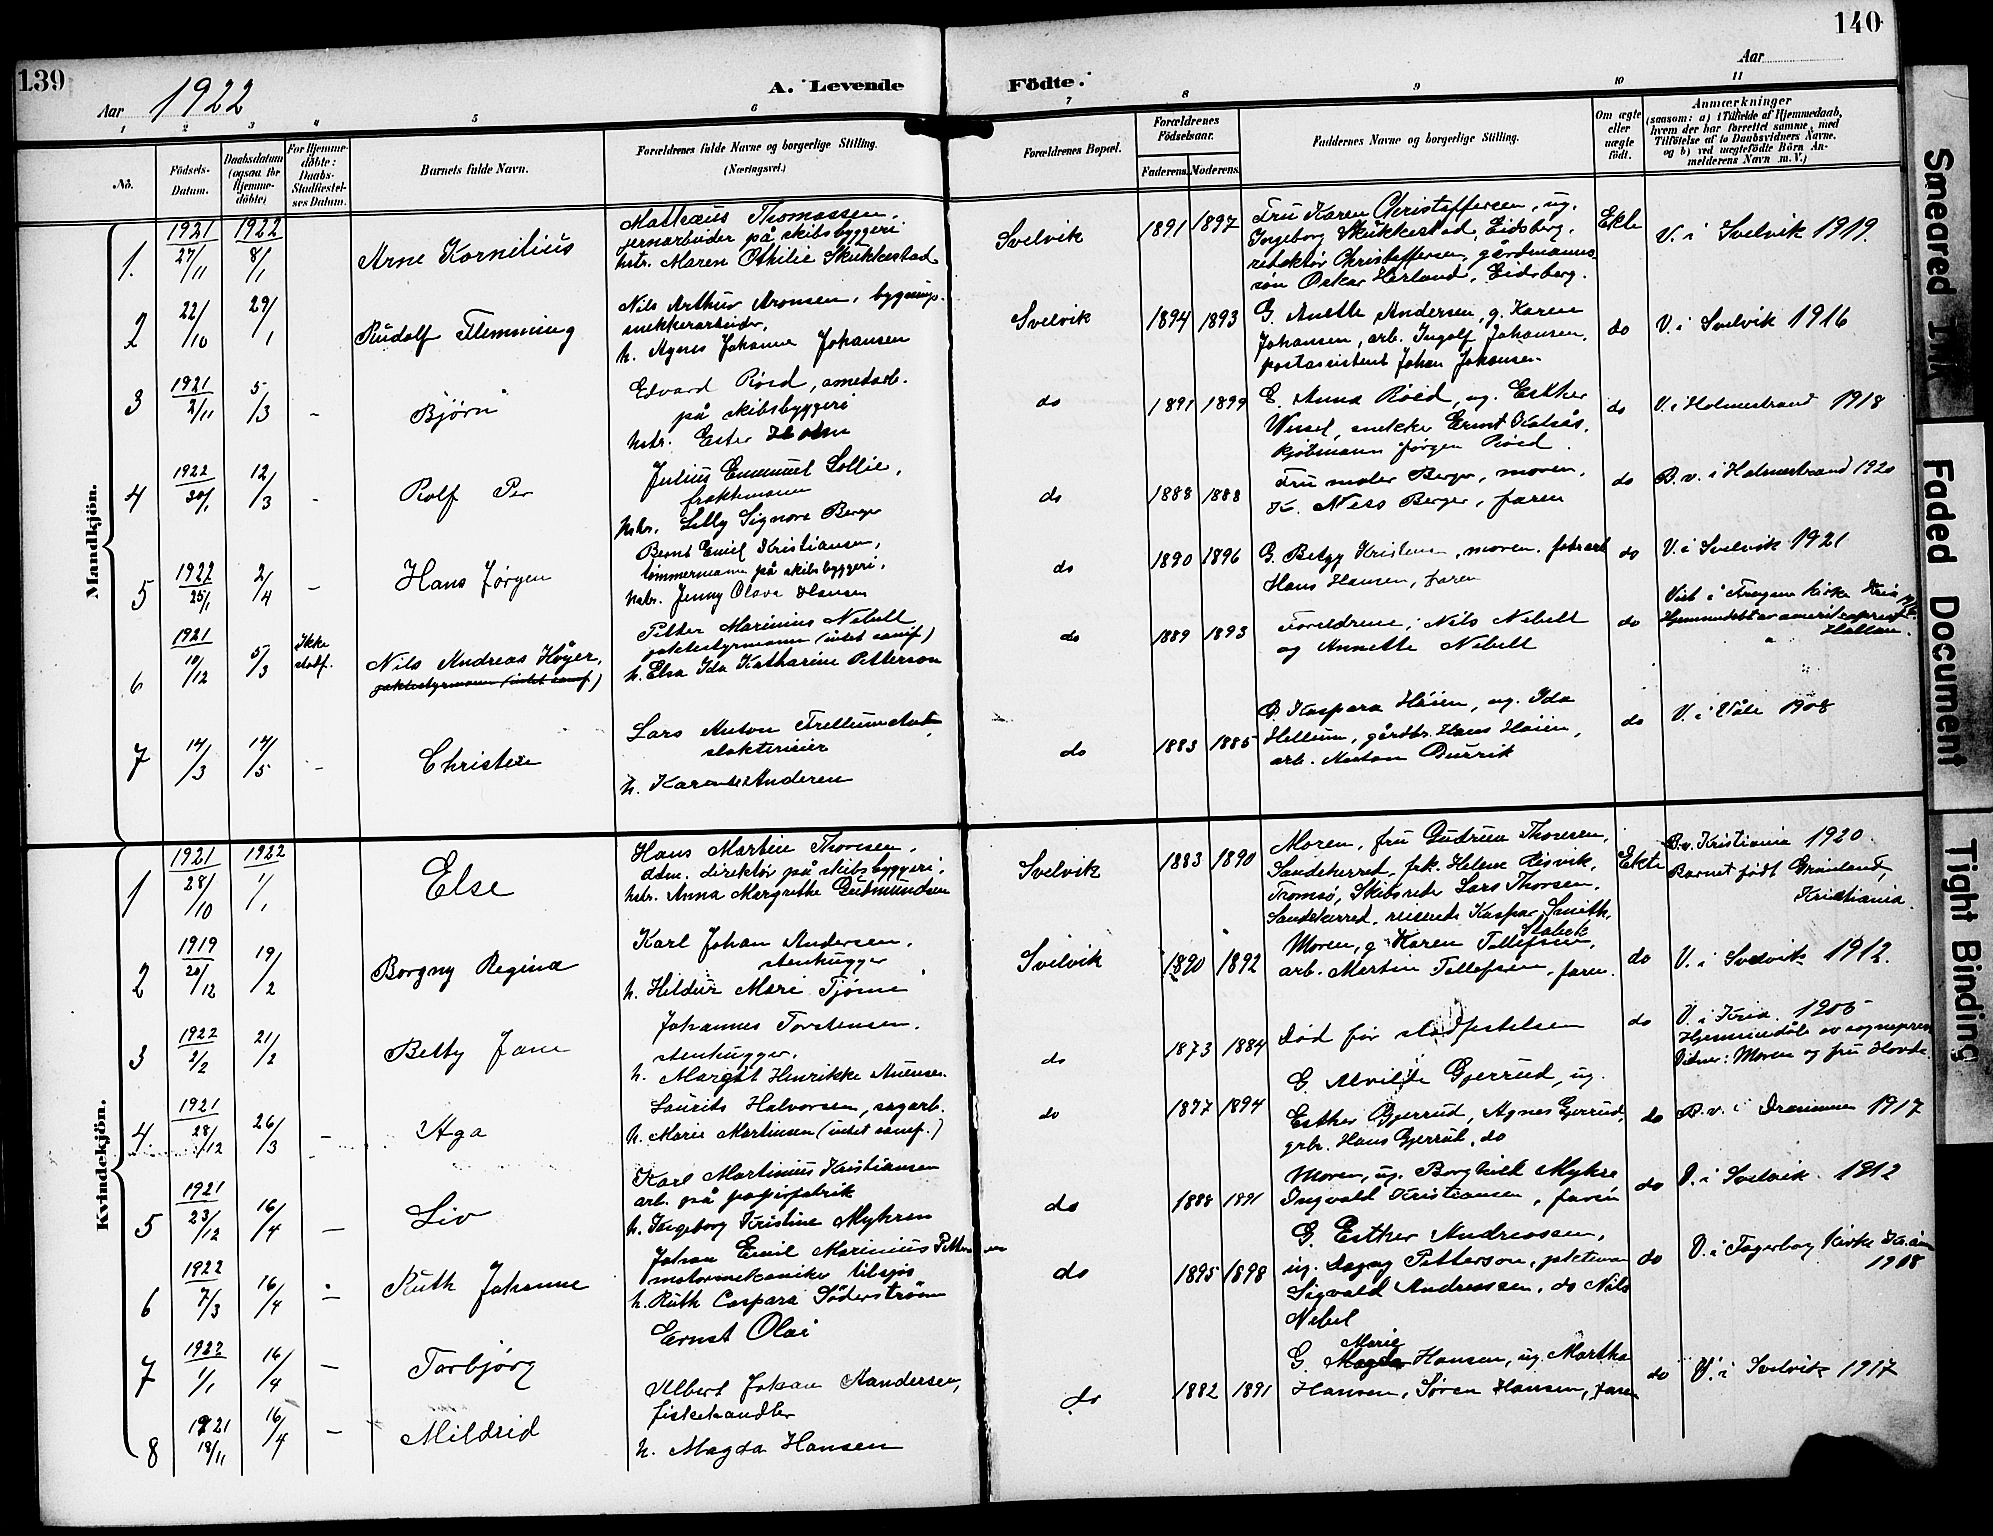 139
140
Aar 1922
A. Levende
Födte.
Aar
1 2 3 4 5 6 7 8 9 10 11
No.
Födsels-
Datum.
Daabsdatum
(ogsaa for
Hjemme-
döbte)
For Hjemme-
döbte:
Daabs-
Stadfæstel-
ses Datum.
Barnets fulde Navn.
Forældrenes fulde Navne og borgerlige Stilling.
(Næringsvei.)
Forældrenes Bopæl.
Forældrenes
Födselsaar.
Faderens. Moderens.
Faddernes Navne og borgerlige Stilling.
Om ægte
eller
uægte
födt.
Anmærkninger
(saasom: a) i Tilfælde af Hjemmedaab,
hvem der har forrettet samme, med
Tilföielse af to Daabsvidners Navne,
og b) ved uægtefödte Börn An-
melderens Navn m. V.)
Mandkjön.
1. 1921 27/11 1922 8/1
Arne Kornelius
Matheus Thomassen,
jernarbeider på skibsbyggeri
hstr. Maren Othilie Skukkestad
Svelvik 1891 1897
Fru Karen Christoffersen, ug.
Ingeborg Skukkestad, Eidsberg,
redaktør Christoffersen, gårdmanns
søn Oskar Herland, Eidsberg.
Ekte
V. i Svelvik 1919.
2 22/10 29/1
Rudolf Flemming
Nils Arthur Aronsen, bygnings-
snekkerarbeider,
h. Agnes Johanne Johansen
Svelvik 1894 1893
G. Anette Andersen, g. Karen
Johansen, arb. Ingolf Johansen,
postassistent Johan Johansen
do
V. i Svelvik 1916
3 1921 2/11 5/3 -
Bjørn
Edvard Röed, smedarb.
på skibsbyggeri
hstr. Ester Holm
do 1891 1899
G. Anna Röed, ug. Esther
Wessel, snekker Ernst
kjøbmann Jørgen Röed
do
V. i Holmestrand 1918
4 1922 20/1 12/3 -
Rolf Per
Julius Emanuel Sollie,
fraktemann
hstr. Lilly Signora Berger
do 1888 1888
Fru maler Berger, moren,
K. Nils Berger, faren
do
B.v. i Holmestrand 1920
5 1922 25/1 2/4 -
Hans Jørgen
Bernt Emil Kristiansen,
tömmermann på skibsbyggeri,
hstr. Jenny Olava Hansen
do 1890 1896
G. Betzy Kristensen, moren, fabr.arb
Hans Hansen, faren
do
V. i Svelvik 1921
6 1921 10/12 5/3 Ikke
stadf.
Nils Andreas Höyer,
Petter Marinius Nebell
jaktestyrmann (intet samf.)
h. Elsa Ida Katharine Petterson
do 1889 1893
Foreldrene, Nils Nebell
og Annette Nebell
do
Viet i Frogner kirke Kria
7 14/3 14/5 -
Christen
Lars Anton
slakterieier
h. Karen Anderen
do 1883 1885
G. Kaspara Höien, ug. Ida
Hellum, gårdbr. Hans Höien,
arb. Anton Burrik
do
V. i Våle 1908
Kvindekjön.
1 1921 28/10 1922 1/1
Else
Hans Martin Thoresen,
adm. direktør på skibsbyggeri,
hstr. Anna Margrethe Gudmundsen
Svelvik 1883 1890
Moren, fru Gudrun Thoresen,
Sandeherred, frk. Helene Risvik,
Tromsø, Skibsreder Lars Thorsen,
Sandeherred, reisende Kaspar Smith,
Stabekk
Ekte
B.v. Kristiania 1920
Barnet født Grønland,
Kristiania.
2 1919 20/12 19/2
Borgny Regina
Karl Johan Andersen,
stenhugger
h. Hildur Mari Tjøme
Svelvik 1890 1892
Moren, g. Karen Tollefsen,
arb. Martin Tollefsen, faren.
do
V. i Svelvik 1912.
3 1922 2/2 21/2
Betty Jane
Johannes Torstensen,
stenhugger,
h. Margit Henrikke
do 1873 1884
Död før stadfestelsen
do
V. i Kria. 1906
Hjemmedöbt av sogneprest
Vidner: Moren og fru Hovde
4. 1921 28/12 26/3 -
Aga
Laurits Halvorsen, sagarb.
h. Marie Martinsen (intet samf.)
do 1897 1894
G. Alvilde Gjerrud, ug.
Esther Gjerrud, Agnes Gjerrud,
grbr. Hans Gjerrud, do
do
B.v. i Drammen 1917
5 1921 23/12 16/4 -
Liv
Karl Martinius Kristiansen
arb. på papirfabrik
h. Ingeborg Kristine Myhren
do 1888 1891
Moren, ug. Borghild Myhre
Ingvald Kristiansen, faren
do
V. i Svelvik 1912
6 1922 7/3 16/4 -
Ruth Johanne
Johan Emil Marinius Pettersen
motormekaniker tilsjøs
h. Ruth Caspara Söderström
do 1895 1898
G. Esther Andreassen,
ug. Dagny Petterson,
Sigvald Andreassen, do Nils
Nebel
do
V. i Fagerborg Kirke Kr.ania
1918
7 1922 1/1 16/4 -
Torbjørg
Ernst Olai
8 1921 18/11 16/4 -
Mildrid
Albert Johan Aandersen,
fiskehandler
h. Magda Hansen
do 1882 1891
Marie
G. Hansen, ug. Martha
Hansen, Søren Hansen, faren
do
V. i Svelvik 1917
Smeared Ink
Faded Document
Tight Binding